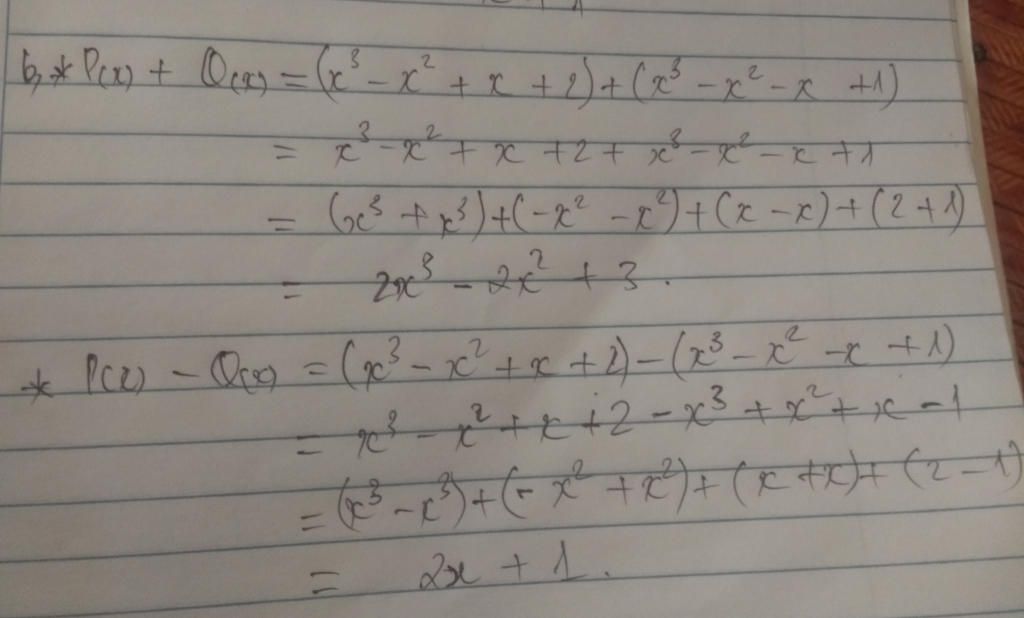 b, * P(x) + Q(x) = (x³ - x² + x + 2) + (x³ - x² - x + 1)
= x³ - x² + x + 2 + x³ - x² - x + 1
= (x³ + x³) + (-x² - x²) + (x - x) + (2 + 1)
= 2x³ - 2x² + 3.
* P(x) - Q(x) = (x³ - x² + x + 2) - (x³ - x² - x + 1)
= x³ - x² + x + 2 - x³ + x² + x - 1
= (x³ - x³) + (- x² + x²) + (x + x) + (2 - 1)
= 2x + 1.